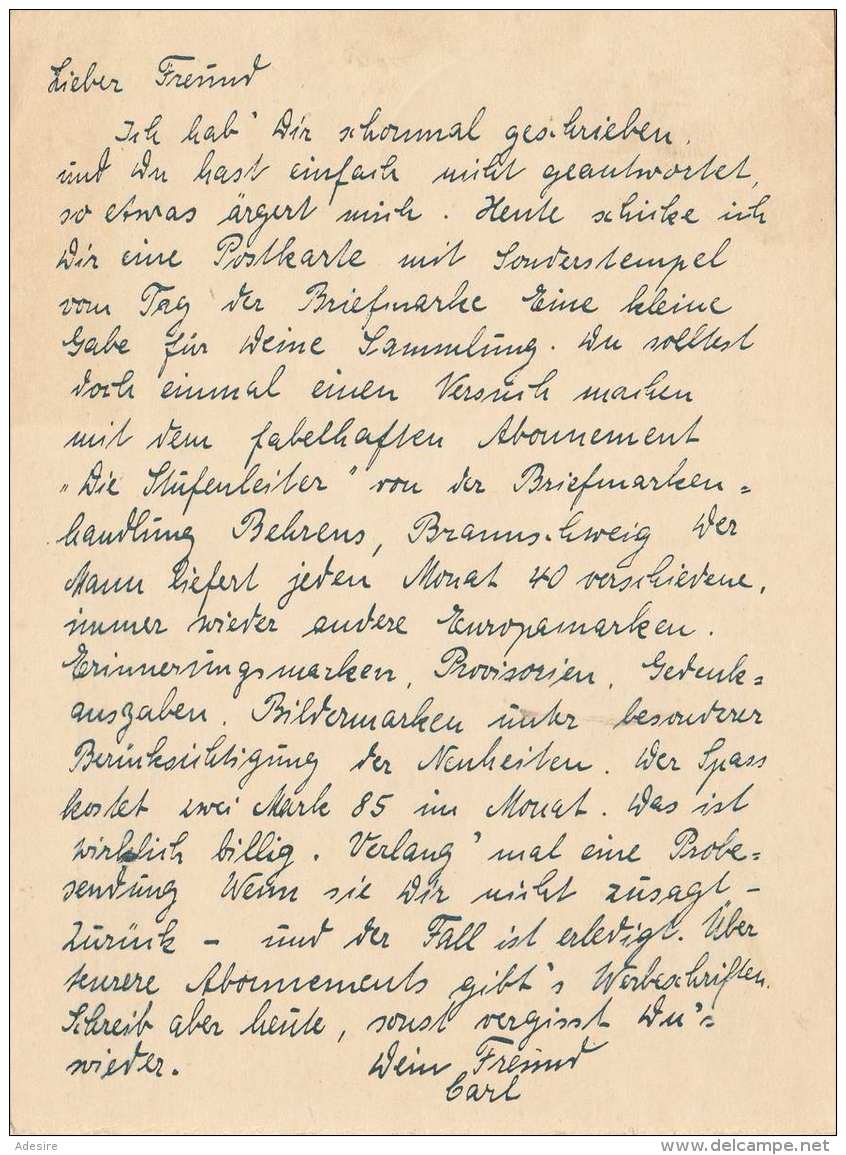 Lieber Freund
Ich hab' Dir schonmal geschrieben,
und Du hast einfach nicht geantwortet,
so etwas ärgert mich. Heute schicke ich
Dir eine Postkarte mit Sonderstempel
vom Tag der Briefmarke Eine kleine
Gabe für Deine Sammlung. Du solltest
doch einmal einen Versuch machen
mit dem fabelhaften Abonnement
"Die Stufenleiter" von der Briefmarken=
handlung Behrens, Braunschweig Der
Mann liefert jeden Monat 40 verschiedene,
immer wieder andere Europamarken.
Erinnerungsmarken, Provisorien, Gedenk=
ausgaben, Bildermarken unter besonderer
Berücksichtigung der Neuheiten. Der Spass
kostet zwei Mark 85 im Monat. Das ist
wirklich billig. Verlang' mal eine Probe=
sendung Wenn sie Dir nicht zusagt –
zurück – und der Fall ist erledigt. Über
teurere Abonnements gibt's Werbeschriften.
Schreib aber heute, sonst vergisst Du's
wieder. Dein Freund
Carl
Adesire
www.delcampe.net